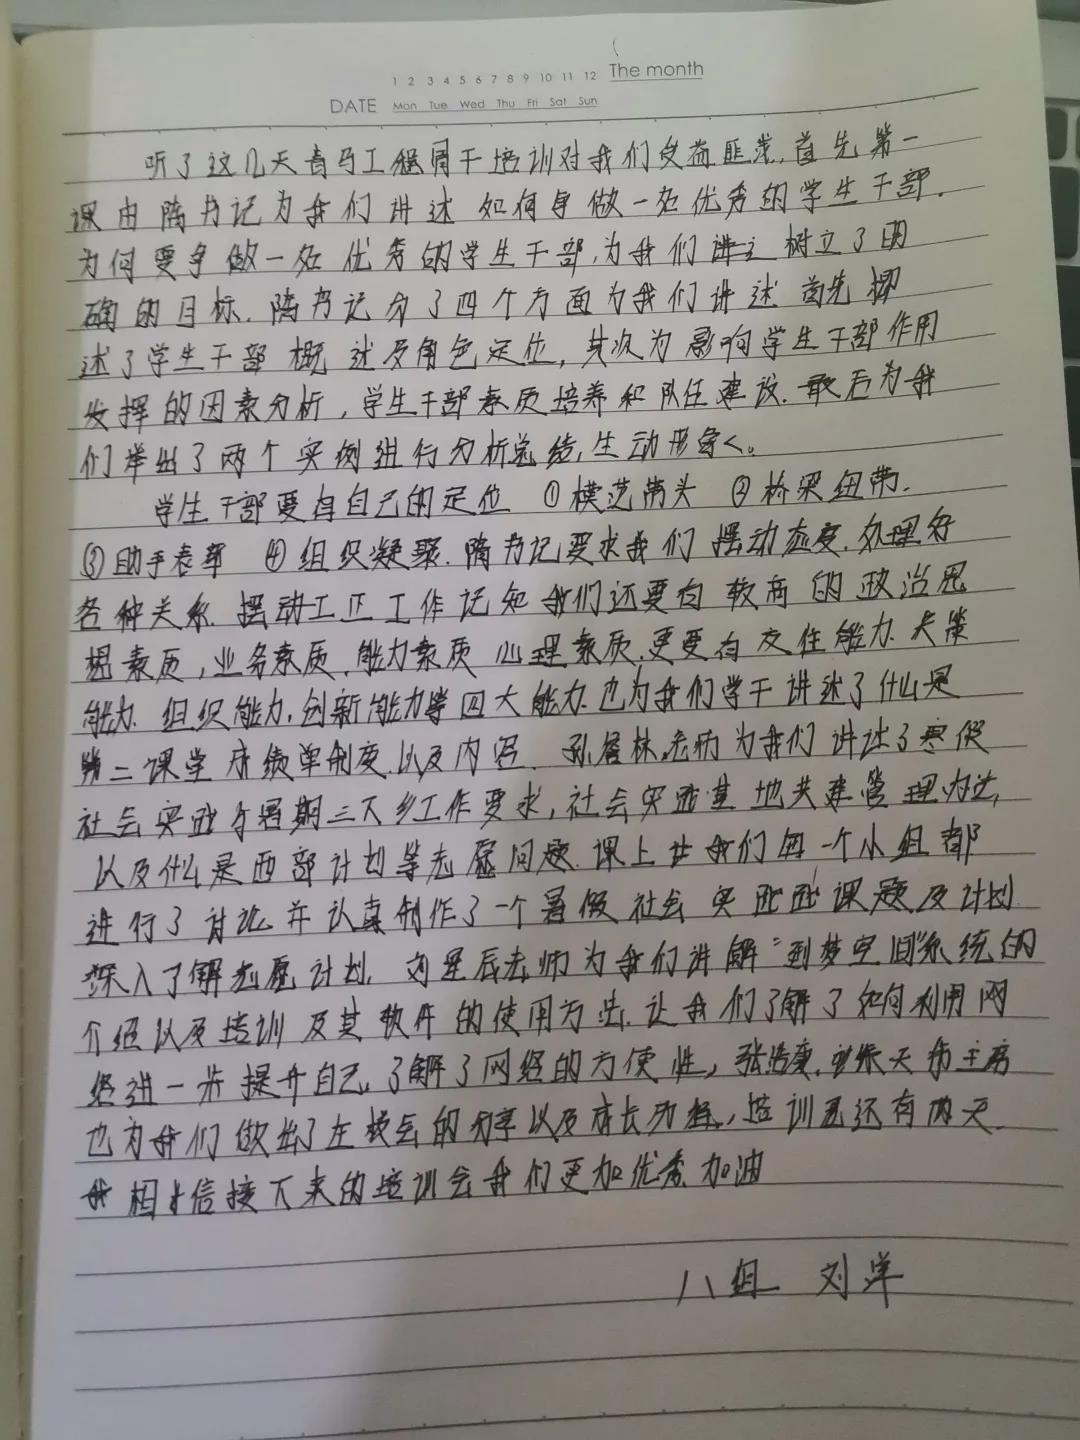 1 2 3 4 5 6 7 8 9 10 11 12 The month
DATE Mon Tue Wed Thu Fri Sat Sun
听了这几天青马工程骨干培训对我们受益匪浅,首先第一
课由陈书记为我们讲述如何争做一名优秀的学生干部.
为何要争做一名优秀的学生干部,为我们树立了明
确的目标.陈书记分了四个方面为我们讲述首先概
述了学生干部概述及角色定位,其次为影响学生干部作用
发挥的因素分析,学生干部素质培养和队伍建设.最后为我
们举出了两个实例进行分析总结,生动形象。
学生干部要有自己的定位 ①模范带头 ②桥梁纽带.
③助手表率 ④组织凝聚.陈书记要求我们摆动态度.处理好
各种关系.摆动工正工作记知我们还要有较高的政治思
想素质,业务素质.能力素质 心理素质.更要有交往能力.决策
能力.组织能力,创新能力等四大能力.也为我们学干讲述了什么是
第二课堂成绩单制度.以及内容.孙 林老师为我们讲述了寒假
社会实践与暑期三下乡工作要求,社会实践基地共建管理办法,
以及什么是西部计划等志愿问题.课上让我们每一个小组都
进行了讨论并认真制作了一个暑假社会实践课题及计划
深入了解志愿计划,刘星辰老师为我们讲解“到梦空间”系统的
介绍以及培训及其软件的使用方法.让我们了解了如何利用网
络进一步提升自己,了解了网络的方便性,张浩康. 张天 主席
也为我们做出了在校会的分享以及成长历程.,培训还有两天.
我相信接下来的培训会我们更加优秀加油
八组 刘洋